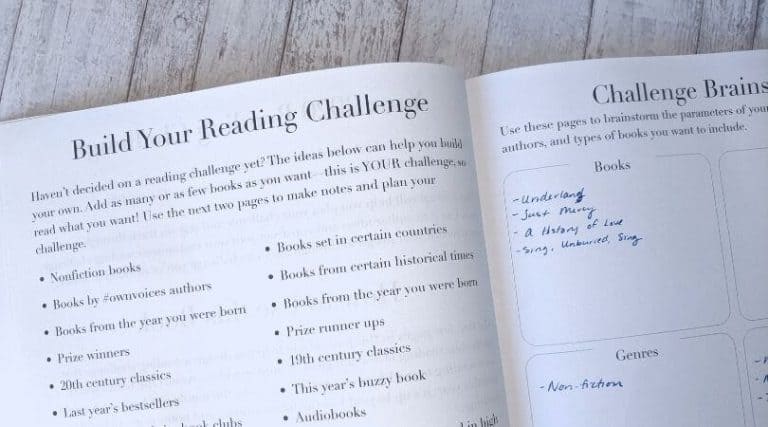 Build Your Reading Challenge
Haven't decided on a reading challenge yet? The ideas below can help you build
your own. Add as many or as few books as you want—this is YOUR challenge, so
read what you want! Use the next two pages to make notes and plan your
challenge.
• Nonfiction books
• Books by #ownvoices authors
• Books from the year you were born
• Prize winners
• 20th century classics
• Last year's bestsellers
clubs
• Books set in certain countries
• Books from certain historical times
• Books from the year you were born
• Prize runner ups
• 19th century classics
• This year's buzzy book
• Audiobooks
in high
Challenge Brains
Use these pages to brainstorm the parameters of your
authors, and types of books you want to include.
Books
- Underland
- Just Mercy
- A History of Love
- Sing, Unburied, Sing
Genres
- Non-fiction